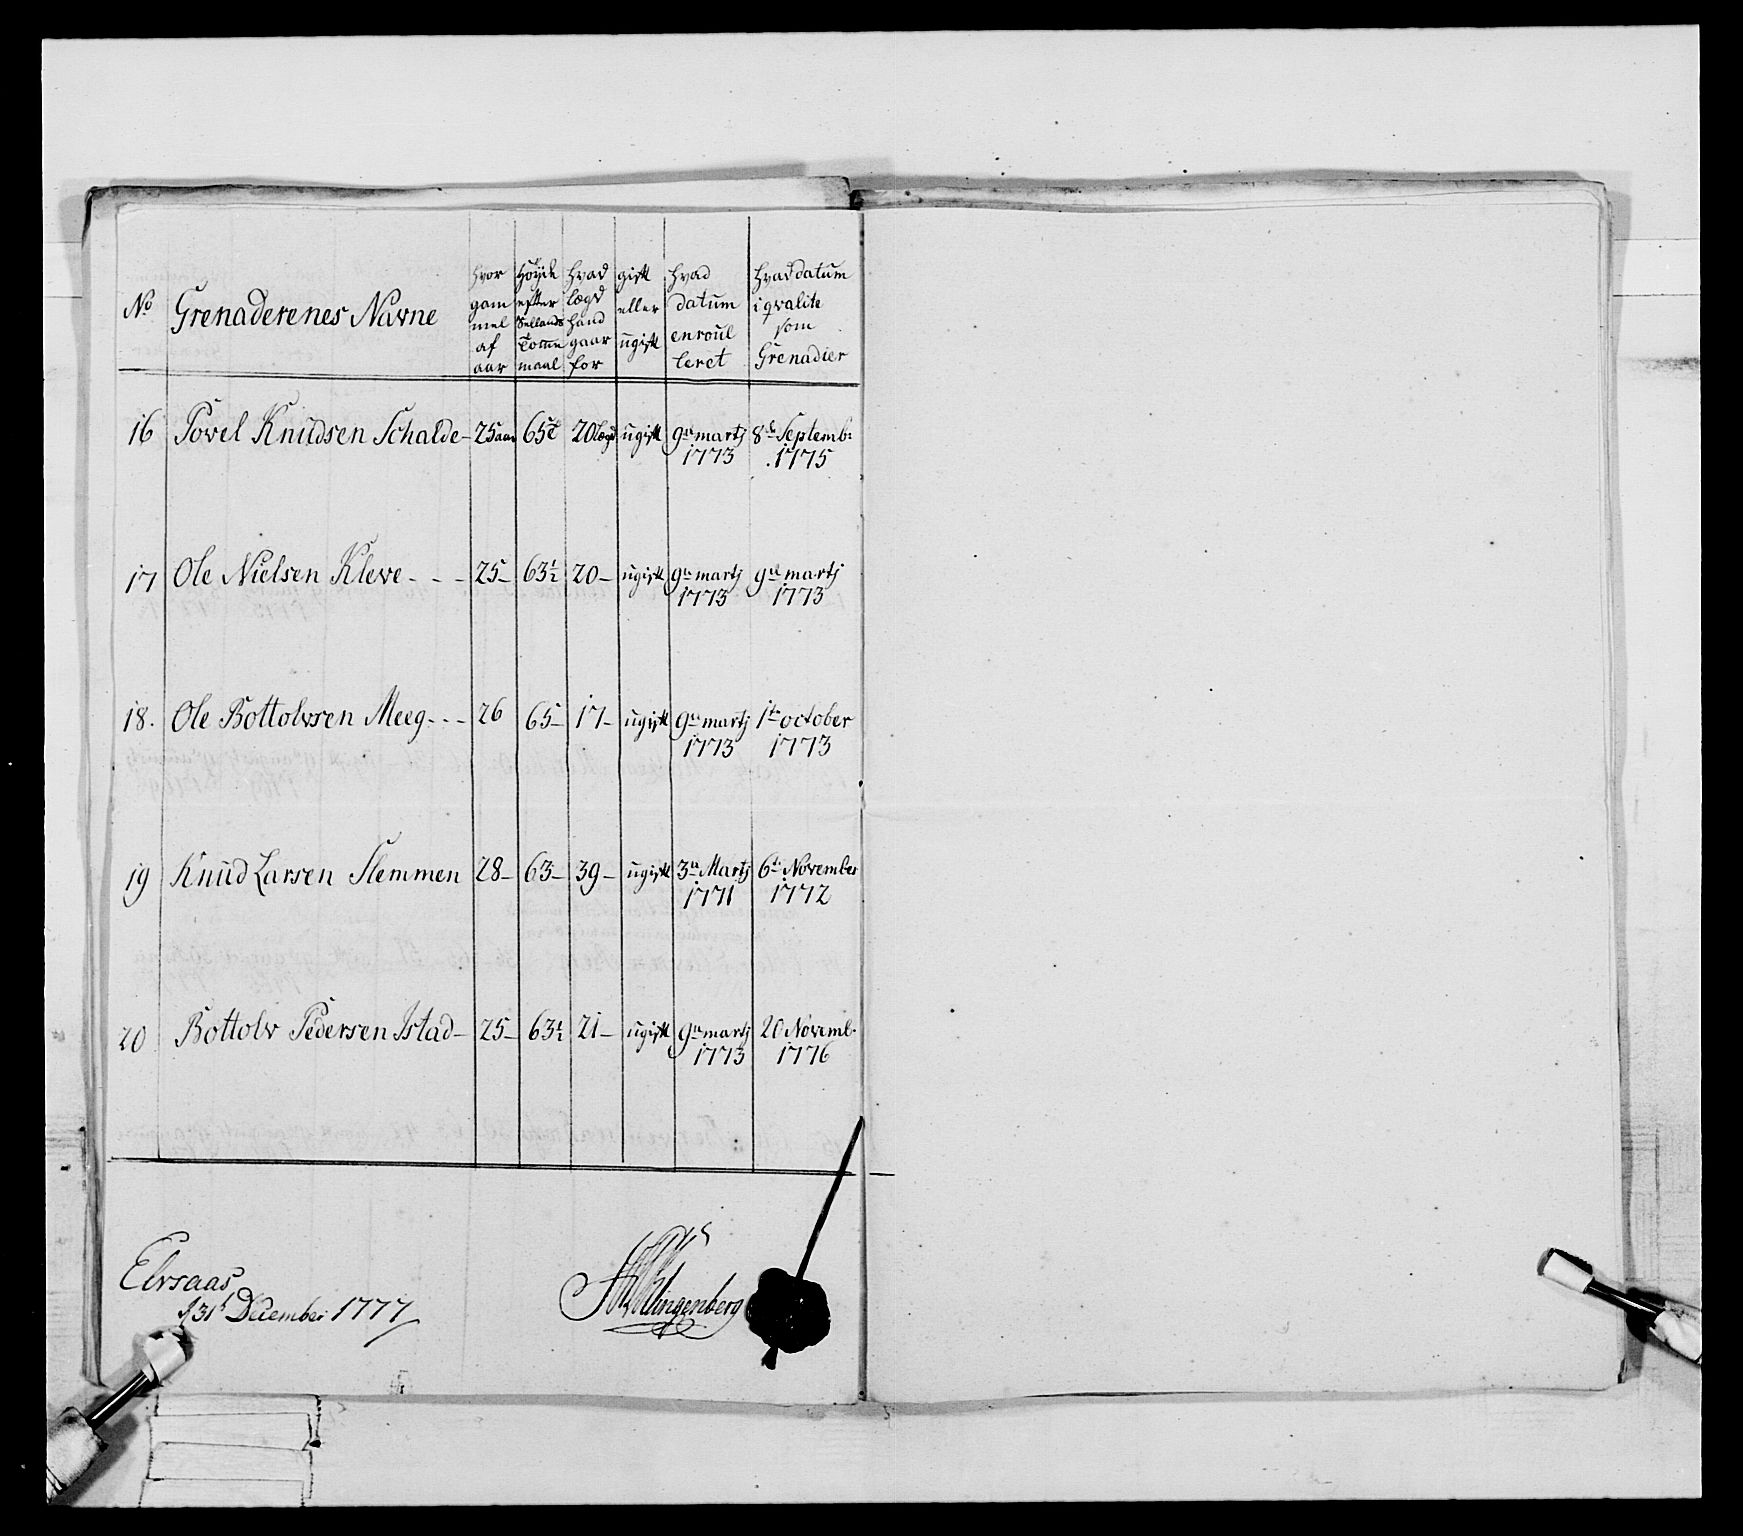 No Grenaderenes Navne hvor gam mel af aar Höyde efter Sellands Tomme maal hvad lægd hand gaar for gift eller ugift hvad datum enroul leret hvad datum i qvalite som Grenadier
16 Povel Knudsen Schalde - 25 aar 65 20 lægd ugift 9de martj 1773 8de Septemb: 1775
17 Ole Nielsen Kleve - - - 25 - 63½ 20 - ugift 9de martj 1773 9de martj 1773
18. Ole Bottolvsen Meeg - - - 26 65 - 17 - ugift 9de martj 1773 1te october 1773
19 Knud Larsen Slemmen 28 - 63 - 39 - ugift 3de Martj 1771 6te November 1772
20 Bottolv Pedersen Istad - 25 - 63½ 21 - ugift 9de martj 1773 20 Novemb: 1776
Elvsaas
d 31t December 1777
Klingenberg